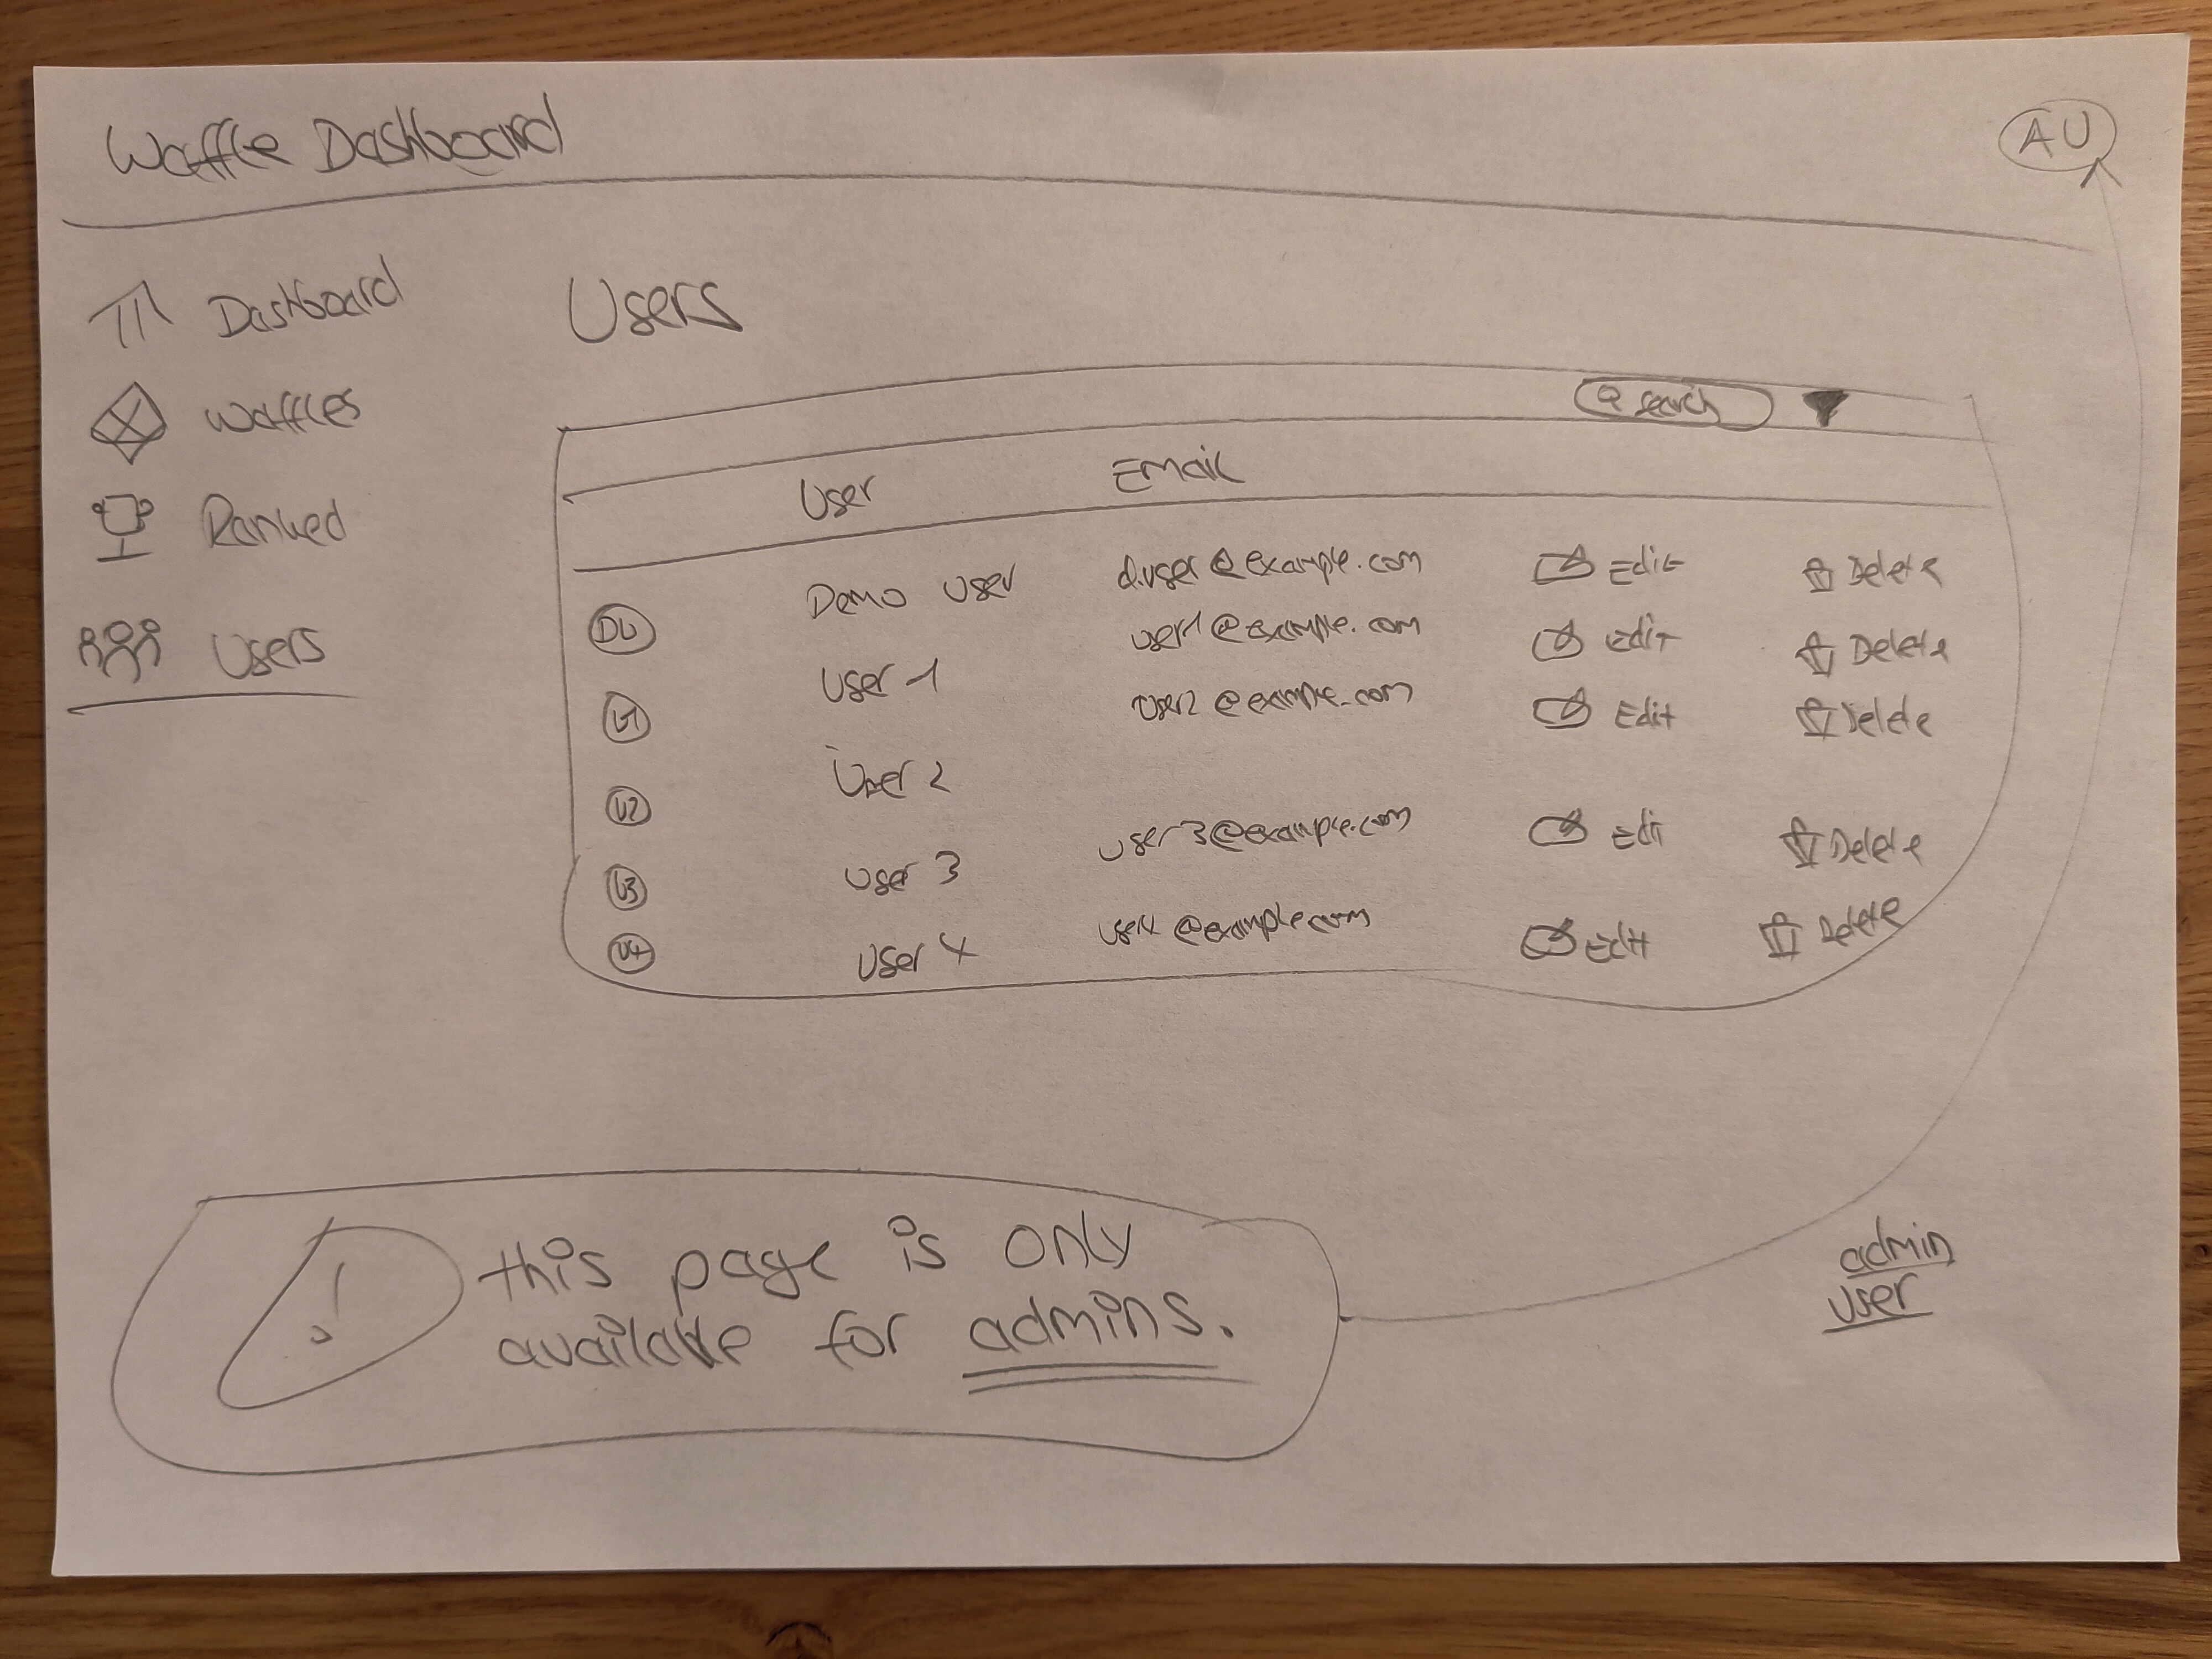 Waffle Dashboard
AU
Dashboard
Waffles
Ranked
Users
Users
search
User Email
DU Demo user d.user@example.com Edit Delete
U1 User 1 user1@example.com Edit Delete
U2 User 2 user2@example.com Edit Delete
U3 User 3 user3@example.com Edit Delete
U4 User 4 user4@example.com Edit Delete
! this page is only
available for admins.
admin
user